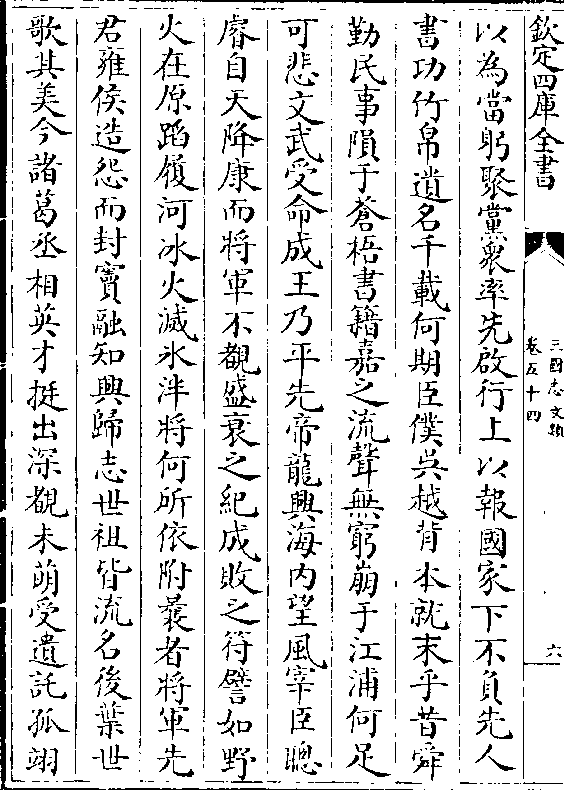 欽定四庫全書
三國志文類
卷五十四
六
以為當躬聚黨衆率先啟行上以報國家下不負先人
書功竹帛遺名千載何期臣僕吳越背本就末乎昔舜
勤民事隕于蒼梧書籍嘉之流聲無窮崩于江浦何足
可悲文武受命成王乃平先帝龍興海内望風宰臣聰
睿自天降康而將軍不覩盛衰之紀成敗之符譬如野
火在原蹈履河冰火滅氷泮將何所依附曩者將軍先
君雍侯造怨而封竇融知興歸志世祖皆流名後葉世
歌其美今諸葛丞相英才挺出深覩未萌受遺託孤翊